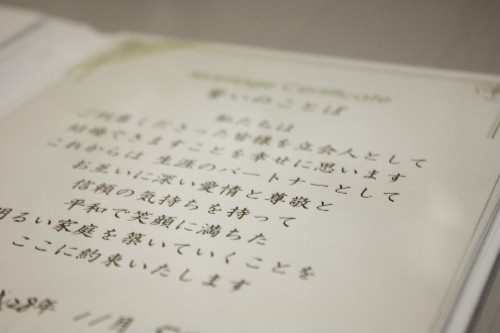 Marriage Certificate
誓いのことば
私たちは
ご列席くださった皆様を立会人として
結婚できますことを幸せに思います
これからは 生涯のパートナーとして
お互いに深い愛情と尊敬と
信頼の気持ちを持って
平和で笑顔に満ちた
明るい家庭を築いていくことを
ここに約束いたします
28年 11月